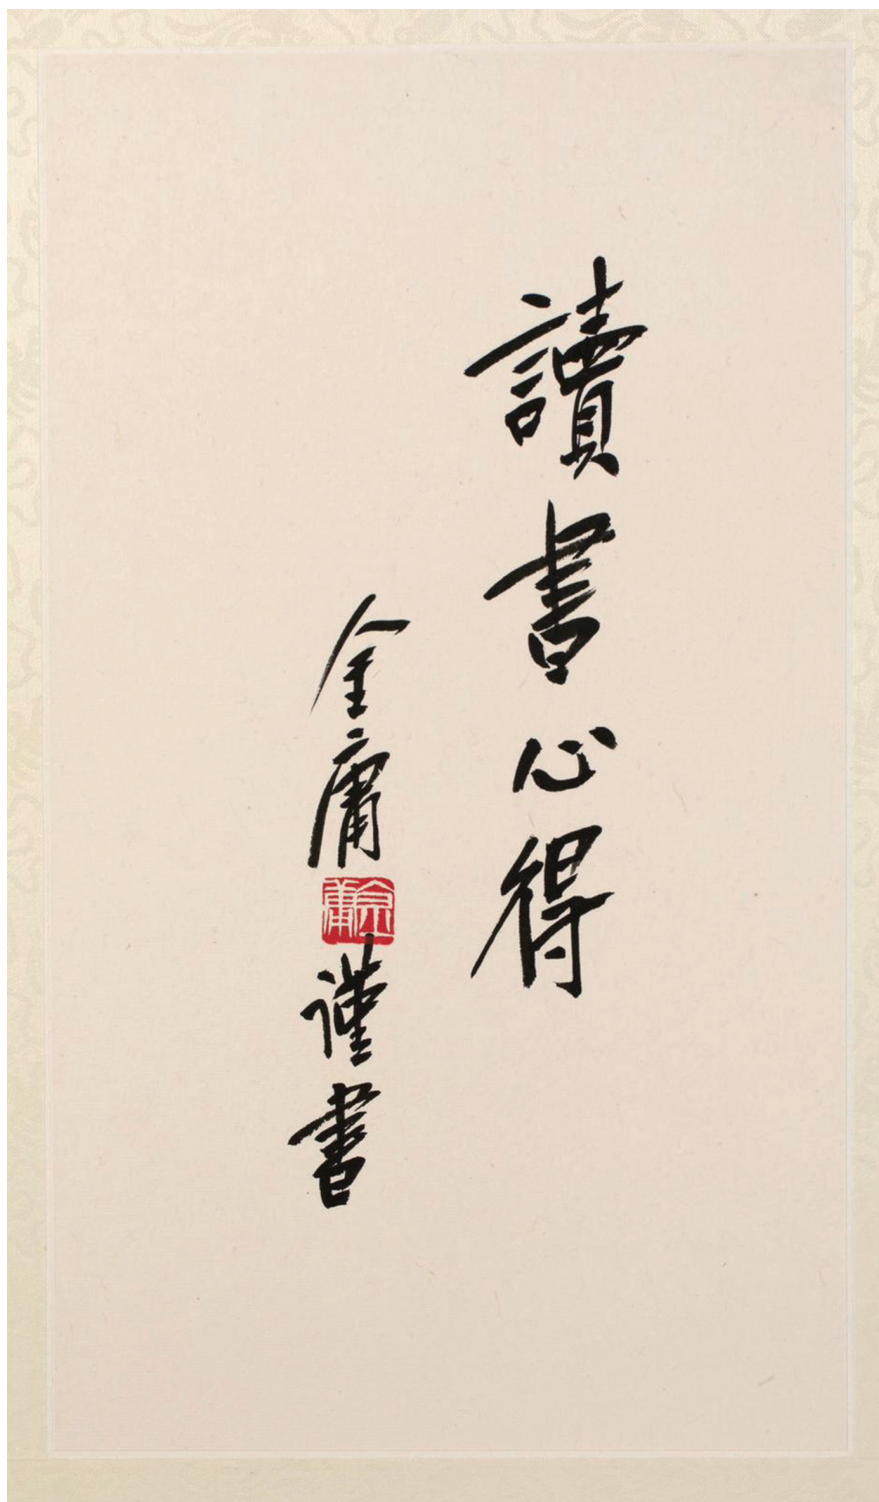 讀書心得
金庸
金庸
謹書